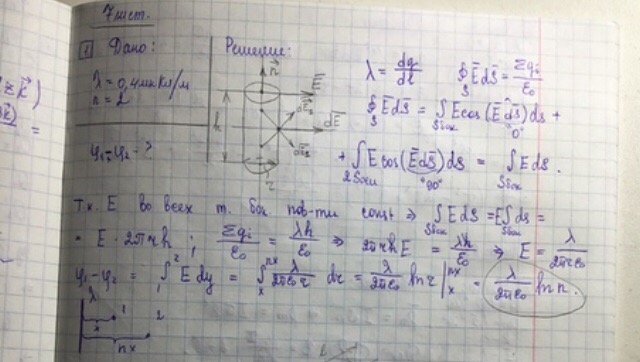 7 лист.
1 Дано:
Решение:
λ = 0,4 мкКл/м
n = 2
φ₁-φ₂ - ?
n⃗
E⃗
dE⃗
h
r
λ = dq/dl ∮S E⃗dS⃗ = Σqi/ε₀
∮S E⃗dS⃗ = ∫Sбок E cos(E⃗dS⃗)ds +
"0"
+ ∫2Sосн E cos(E⃗dS⃗)ds = ∫Sбок E ds.
"90°"
Т.к. E во всех т. бок. пов-ти const ⇒ ∫Sбок E dS = E∫Sбок ds =
= E · 2πrh ; Σqi/ε₀ = λh/ε₀ ⇒ 2πrhE = λh/ε₀ ⇒ E = λ/2πrε₀
φ₁-φ₂ = ∫₁² E dr = ∫x^nx λ/2πε₀r dr = λ/2πε₀ ln r |x^nx = λ/2πε₀ ln n.
λ
1
2
x
nx